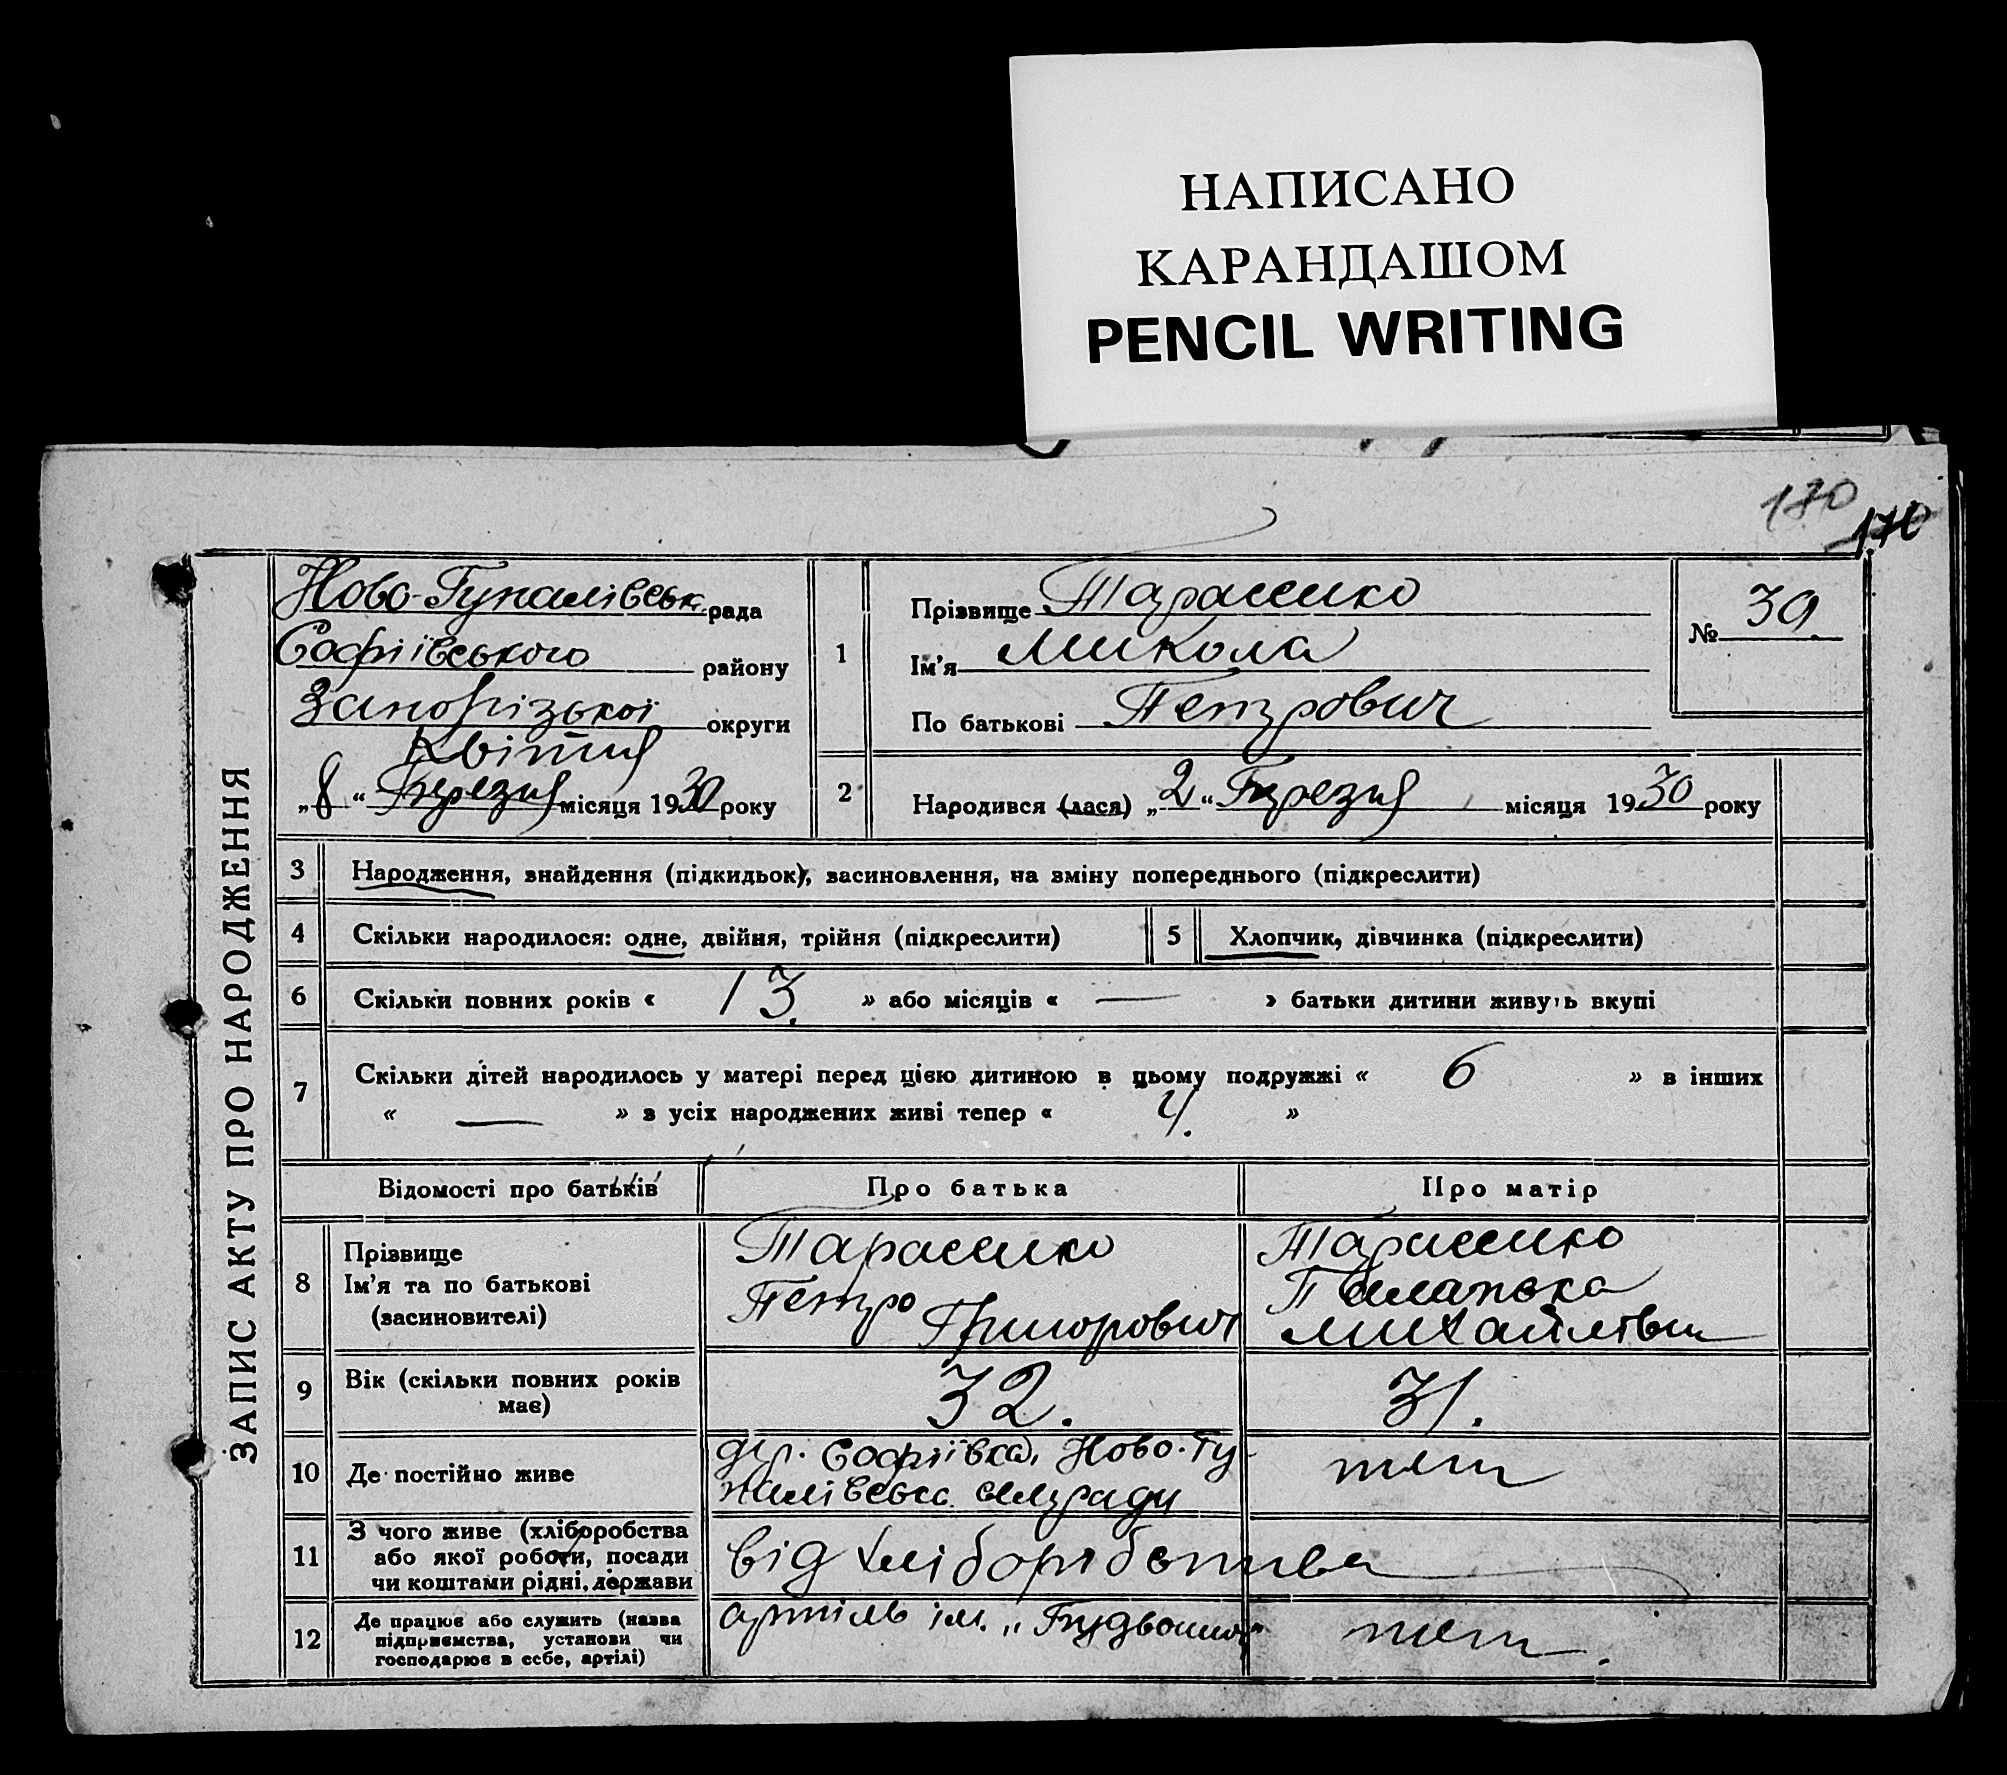 НАПИСАНО
КАРАНДАШОМ
PENCIL WRITING
170
170
ЗАПИС АКТУ ПРО НАРОДЖЕННЯ
Ново-Гупалівськ. рада
Софіївського району
Запорізької округи
Квітня
„8“ Березня місяця 1930 року
1
Прізвище Тарасенко
Ім'я Микола
По батькові Петрович
№ 39
2 Народився (лася) „2“ Березня місяця 1930 року
3 Народження, знайдення (підкидьок), васиновлення, на зміну попереднього (підкреслити)
4 Скільки народилося: одне, двійня, трійня (підкреслити)
5 Хлопчик, дівчинка (підкреслити)
6 Скільки повних років « 13. » або місяців « — » батьки дитини живуть вкупі
7 Скільки дітей народилось у матері перед цією дитиною в цьому подружжі « 6 » в інших
« — » з усіх народжених живі тепер « 4. »
Відомості про батьків
Про батька
Про матір
8 Прізвище
Ім'я та по батькові
(васиновителі)
Тарасенко
Петро Григорович
Тарасенко
Пелагька
Михайлівна
9 Вік (скільки повних років
має)
32.
31.
10 Де постійно живе
дер. Софіївка, Ново-Гу-
палівськ. сельради
теж
11 З чого живе (хліборобства
або якої роботи, посади
чи коштами рідні, держави
від хліборобства
12 Де працює або служить (назва
підприємства, установи чи
господарює в себе, артілі)
артіль ім.
теж.